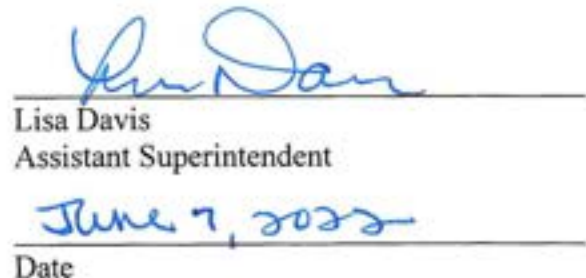 Lisa Davis
Assistant Superintendent
June 7, 2022
Date